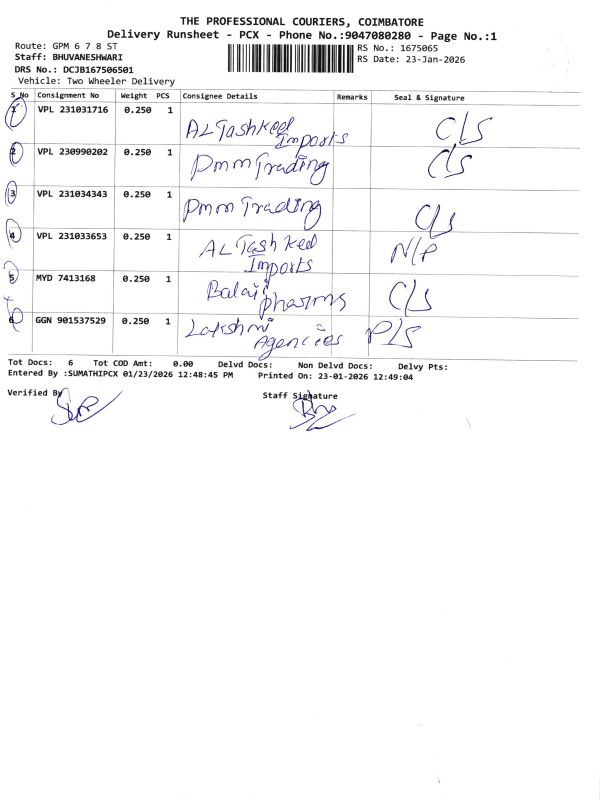 THE PROFESSIONAL COURIERS, COIMBATORE
Delivery Runsheet - PCX - Phone No.:9047080280 - Page No.:1
Route: GPM 6 7 8 ST RS No.: 1675065
Staff: BHUVANESHWARI RS Date: 23-Jan-2026
DRS No.: DCJB167506501
Vehicle: Two Wheeler Delivery
S_No Consignment No Weight PCS Consignee Details Remarks Seal & Signature
1 VPL 231031716 0.250 1
AL Tashkeel Imports C/S
2 VPL 230990202 0.250 1
Pmm Trading C/S
3 VPL 231034343 0.250 1
Pmm Trading C/S
4 VPL 231033653 0.250 1
AL Tashkeel N/P
Imports
5 MYD 7413168 0.250 1
Balaji Pharms C/S
6 GGN 901537529 0.250 1
Lakshmi P/S
Agencies
Tot Docs: 6 Tot COD Amt: 0.00 Delvd Docs: Non Delvd Docs: Delvy Pts:
Entered By :SUMATHIPCX 01/23/2026 12:48:45 PM Printed On: 23-01-2026 12:49:04
Verified By Staff Signature